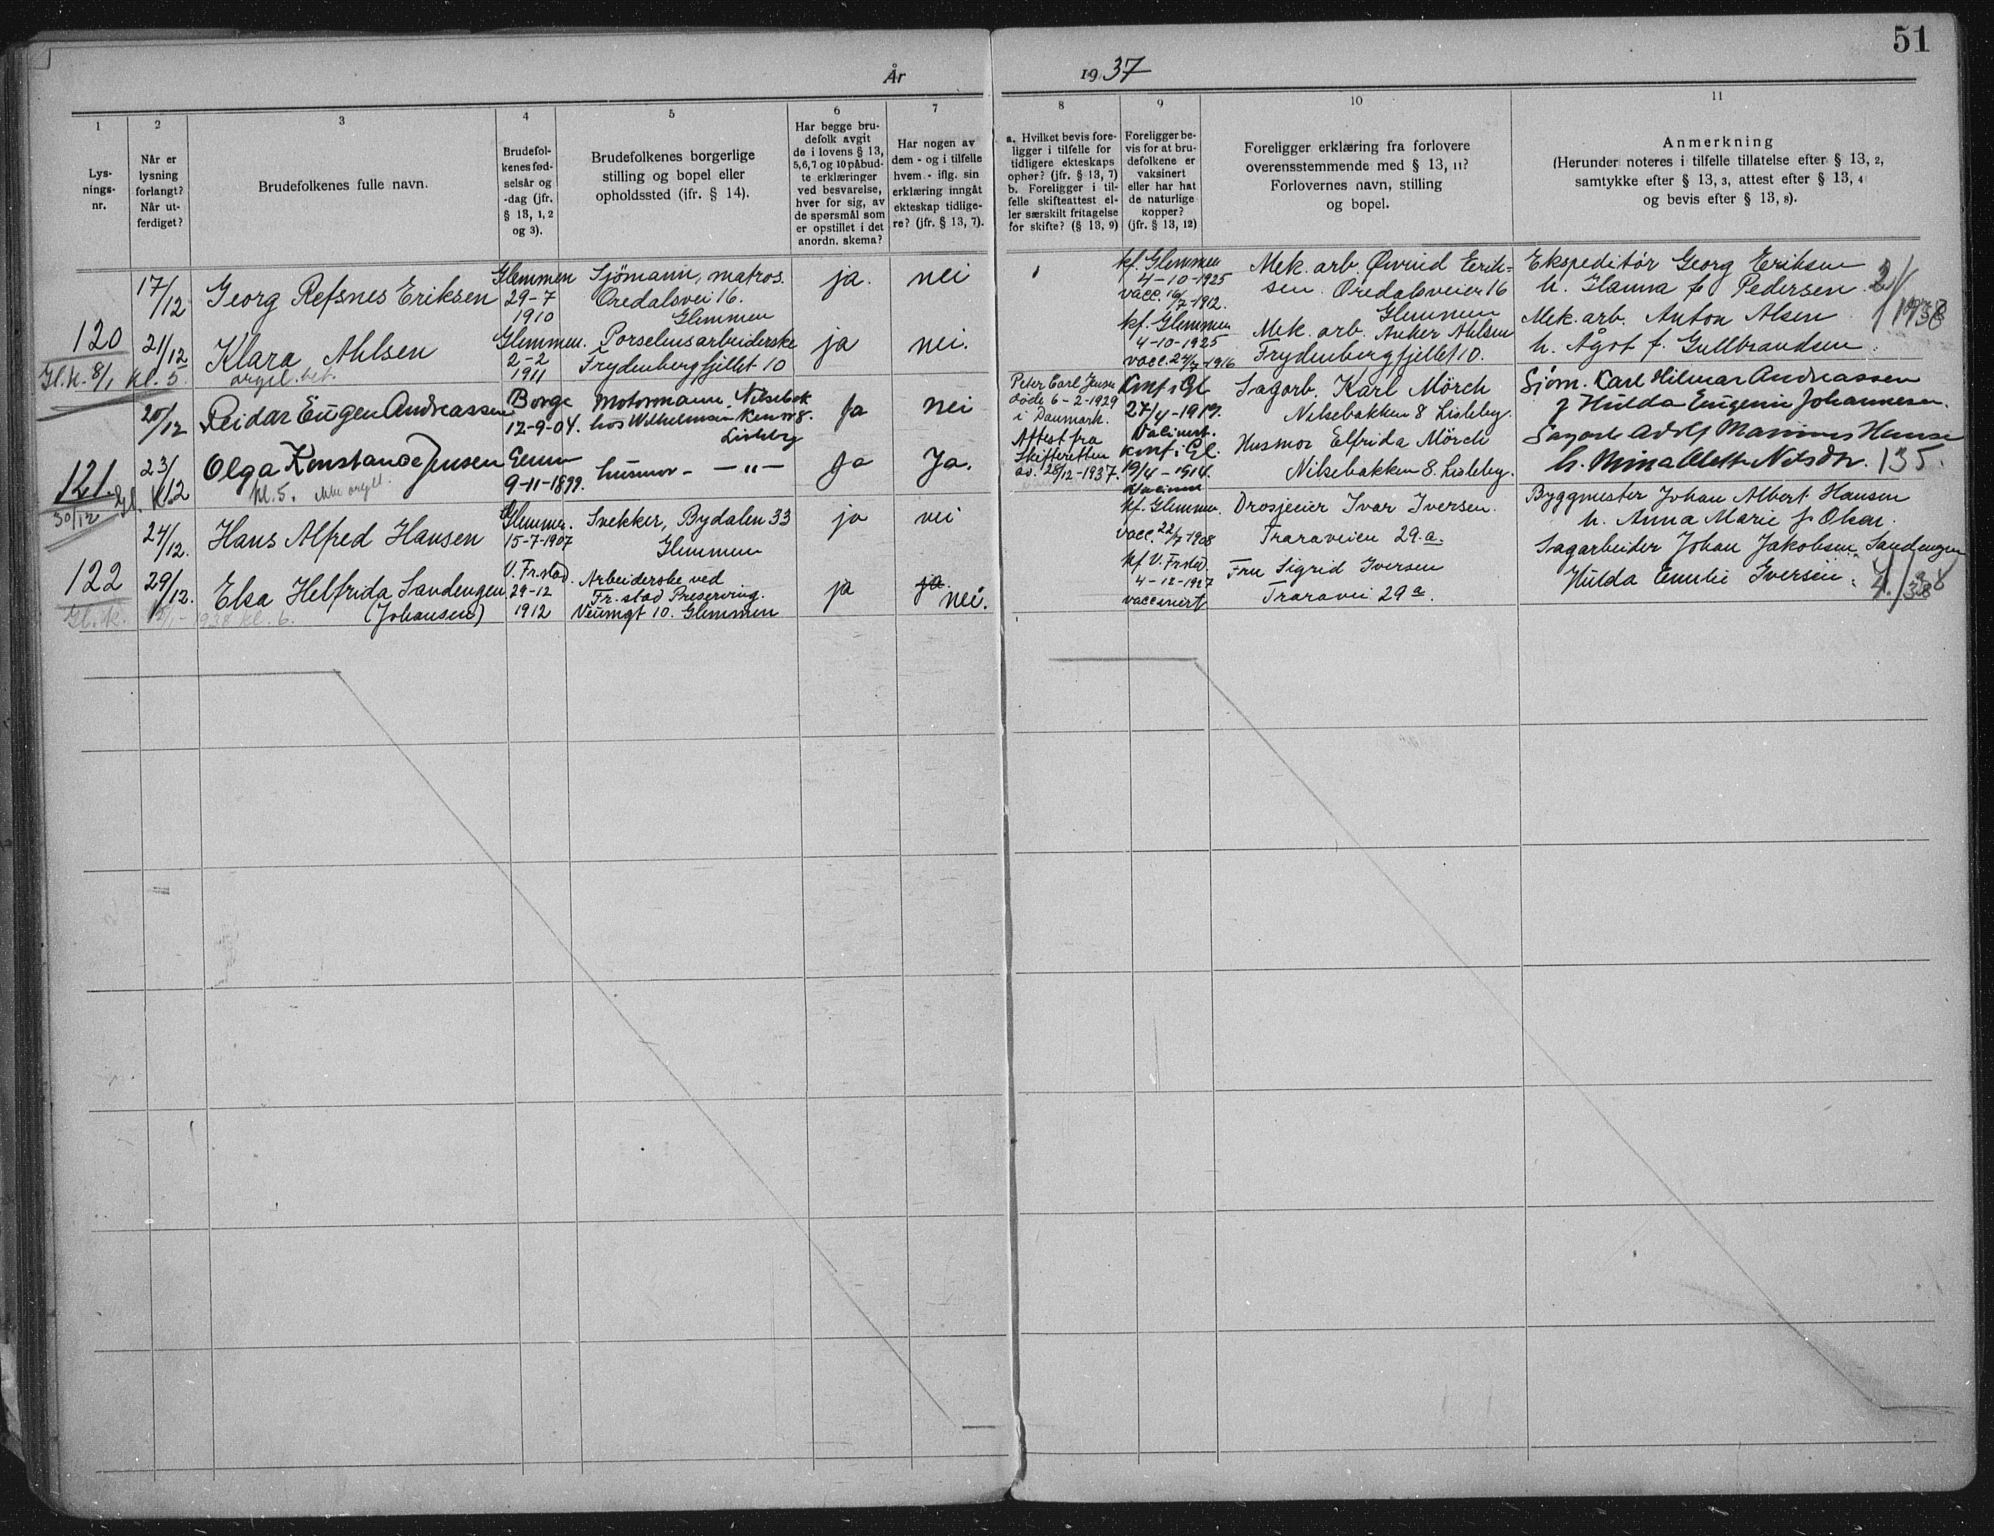 51
År 1937
1
2
3
4
5
6
7
8
9
10
11
Lys-
nings-
nr.
Når er
lysning
forlangt?
Når ut-
ferdiget?
Brudefolkenes fulle navn.
Brudefol-
kenes fød-
selsår og
-dag (jfr.
§ 13, 1, 2
og 3).
Brudefolkenes borgerlige
stilling og bopel eller
opholdssted (jfr. § 14).
Har begge bru-
defolk avgit
de i lovens § 13,
5, 6, 7 og 10 påbud-
te erklæringer
ved besvarelse,
hver for sig, av
de spørsmål som
er opstillet i det
anordn. skema?
Har nogen av
dem - og i tilfelle
hvem - iflg. sin
erklæring inngått
ekteskap tidlige-
re? (jfr. § 13, 7).
a. Hvilket bevis fore-
ligger i tilfelle for
tidligere ekteskaps
ophør? (jfr. § 13, 7)
b. Foreligger i til-
felle skifteattest el-
ler særskilt fritagelse
for skifte? (§ 13, 9)
Foreligger be-
vis for at bru-
defolkene er
vaksinert
eller har hat
de naturlige
kopper?
(jfr. § 13, 12)
Foreligger erklæring fra forlovere
overensstemmende med § 13, 11?
Forlovernes navn, stilling
og bopel.
Anmerkning
(Herunder noteres i tilfelle tillatelse efter § 13, 2,
samtykke efter § 13, 3, attest efter § 13, 4
og bevis efter § 13, 8).
120
Gl.k. 8/1 kl. 5
17/12
Georg Refsnes Eriksen
Glemmen
29-7
1910
Sjömann, matros.
Oredalsvei 16.
Glemmen
ja.
nei
kf. Glemmen
4-10-1925
vacc. 16/7-1912.
Mek. arb. Øivind Erik-
sen. Oredalsveien 16
Glemmen
Ekspeditör Georg Eriksen
h. Hanna f. Pedersen
2/1 1938
21/12
Klara Ahlsen
orgel bet.
Glemmen.
2-2
1911
Porselensarbeiderske
Frydenbergfjellet 10
ja
nei.
kf. Glemmen
4-10-1925
vacc. 24/7-1916
Mek. arb. Anker Ahlsen
Frydenbergfjellet 10.
Mek. arb. Anton Alsen
h. Ågot f. Gullbrandsen.
121
30/12 Gl. K.
20/12
Reidar Eugen Andreassen
Borge
12-9-04.
Motormann. Nilsebak
hos Wilhelmsen
Lisleby
Ja
nei
Peter Carl Jensen
døde 6-2-1929
i Danmark.
Attest fra
Skifteretten
av. 28/12-1937.
Konf i Gl
27/4-1919.
Vacinert.
Sagarb. Karl Mörch
Nilsebakken 8 Lisleby.
Sjöm. Karl Hilmar Andreassen
f Hulda Eugenie Johannesen.
23/12
Olga Konstance Jensen
kl. 5. ikke orgel.
9-11-1899.
husmor - -"-
Ja
Ja.
Konf i Gl.
19/4-1914.
Husmor Elfrida Mörch
Nilsebakken 8. Lisleby.
Adolf Hansen
135.
122
Gl. K. 1938 kl. 6.
24/12.
Hans Alfred Hansen
Glemmen.
15-7-1907
Svekker, Bydalen 33
Glemmen
ja
nei
kf. Glemmen.
vacc. 22/7-1908
Drosjeeier Ivar Iversen.
Traraveien 29.a.
Byggmester Johan Albert Hansen
h. Anna Marie f. Olsen.
29/12.
Elsa Helfrida Sandengen
(Johansen)
V. Fr.stad.
29-12
1912
Arbeiderske ved
Fr. stad Preserving.
Veumgt 10. Glemmen
ja
ja
nei.
kf V. Fr.stad.
4-12-1927
vaccinert
Fru Sigrid Iversen
Traravei 29a.
Sagarbeider Johan Jakobsen Sandengen
Hulda Emilie Iversen.